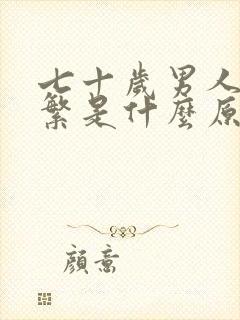 七十歲男人
繁是什麼原
顏意